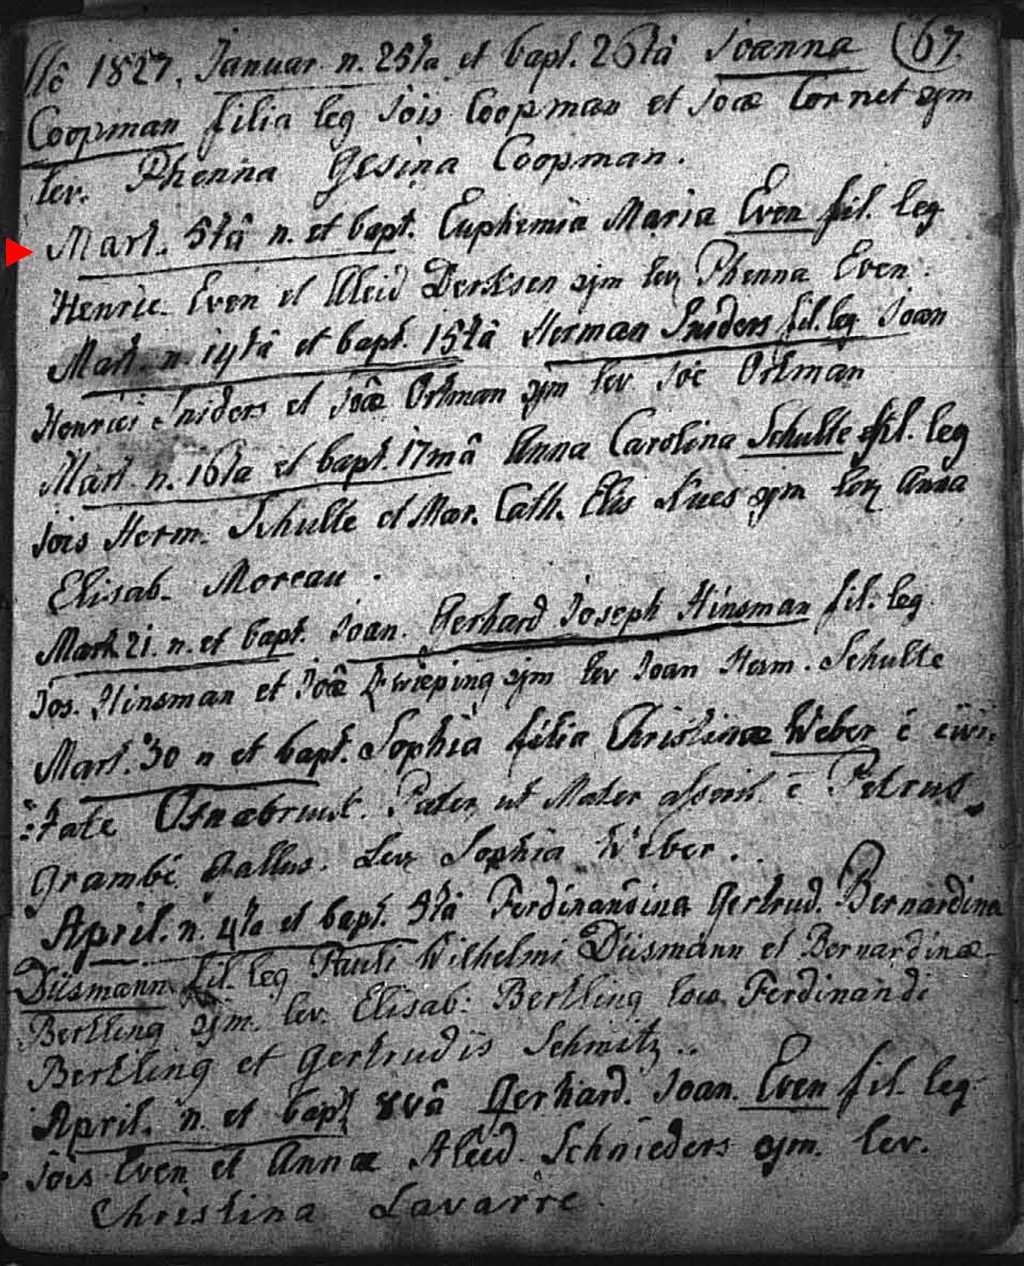 1827. Januar n. 25ta et bapt. 26tâ Joanna 67.
Coopman filia leg Jois Coopman et Joæ Cornet ejm
lev. Phenna Gesina Coopman.
Mart. 5tâ n. et bapt. Euphemia Maria Even fil. leg
Henric Even et Aleid Derksen ejm lev Phenna Even.
Mart. n. 14tâ et bapt. 15tâ Herman Sniders fil. leg Joan
Henrici Sniders et Joæ Ortman ejm lev Joe Ortman
Mart. n. 16ta et bapt. 17mâ Anna Carolina Schulte fil. leg
Jois Herm. Schulte et Mar. Cath. Elis ejm lev Anna
Elisab. Moreau.
Mart. 21. n. et bapt. Joan. Gerhard Joseph Hinsman fil. leg
Jos. Hinsman et Joæ ejm lev Joan Herm. Schulte
Mart. 30 n et bapt. Sophia filia Christinæ Weber é civi:
:tate Pater ut Mater é Petrus
Grambé Gallus. Lev Sophia Weber..
April. n. 4ta et bapt. 5tâ Ferdinandina Gertrud. Bernardina
Düsmann fil. leg Pauli Wilhelmi Düsmann et Bernardinæ
Bertling ejm. lev. Elisab: Bertling loco Ferdinandi
Bertling et Gertrudis Schmitz..
April. n. et bapt 8vâ Gerhard. Joan. Even fil. leg
Jois Even et Annæ Aleid. Schnieders ejm. lev.
Christina Lavarre.